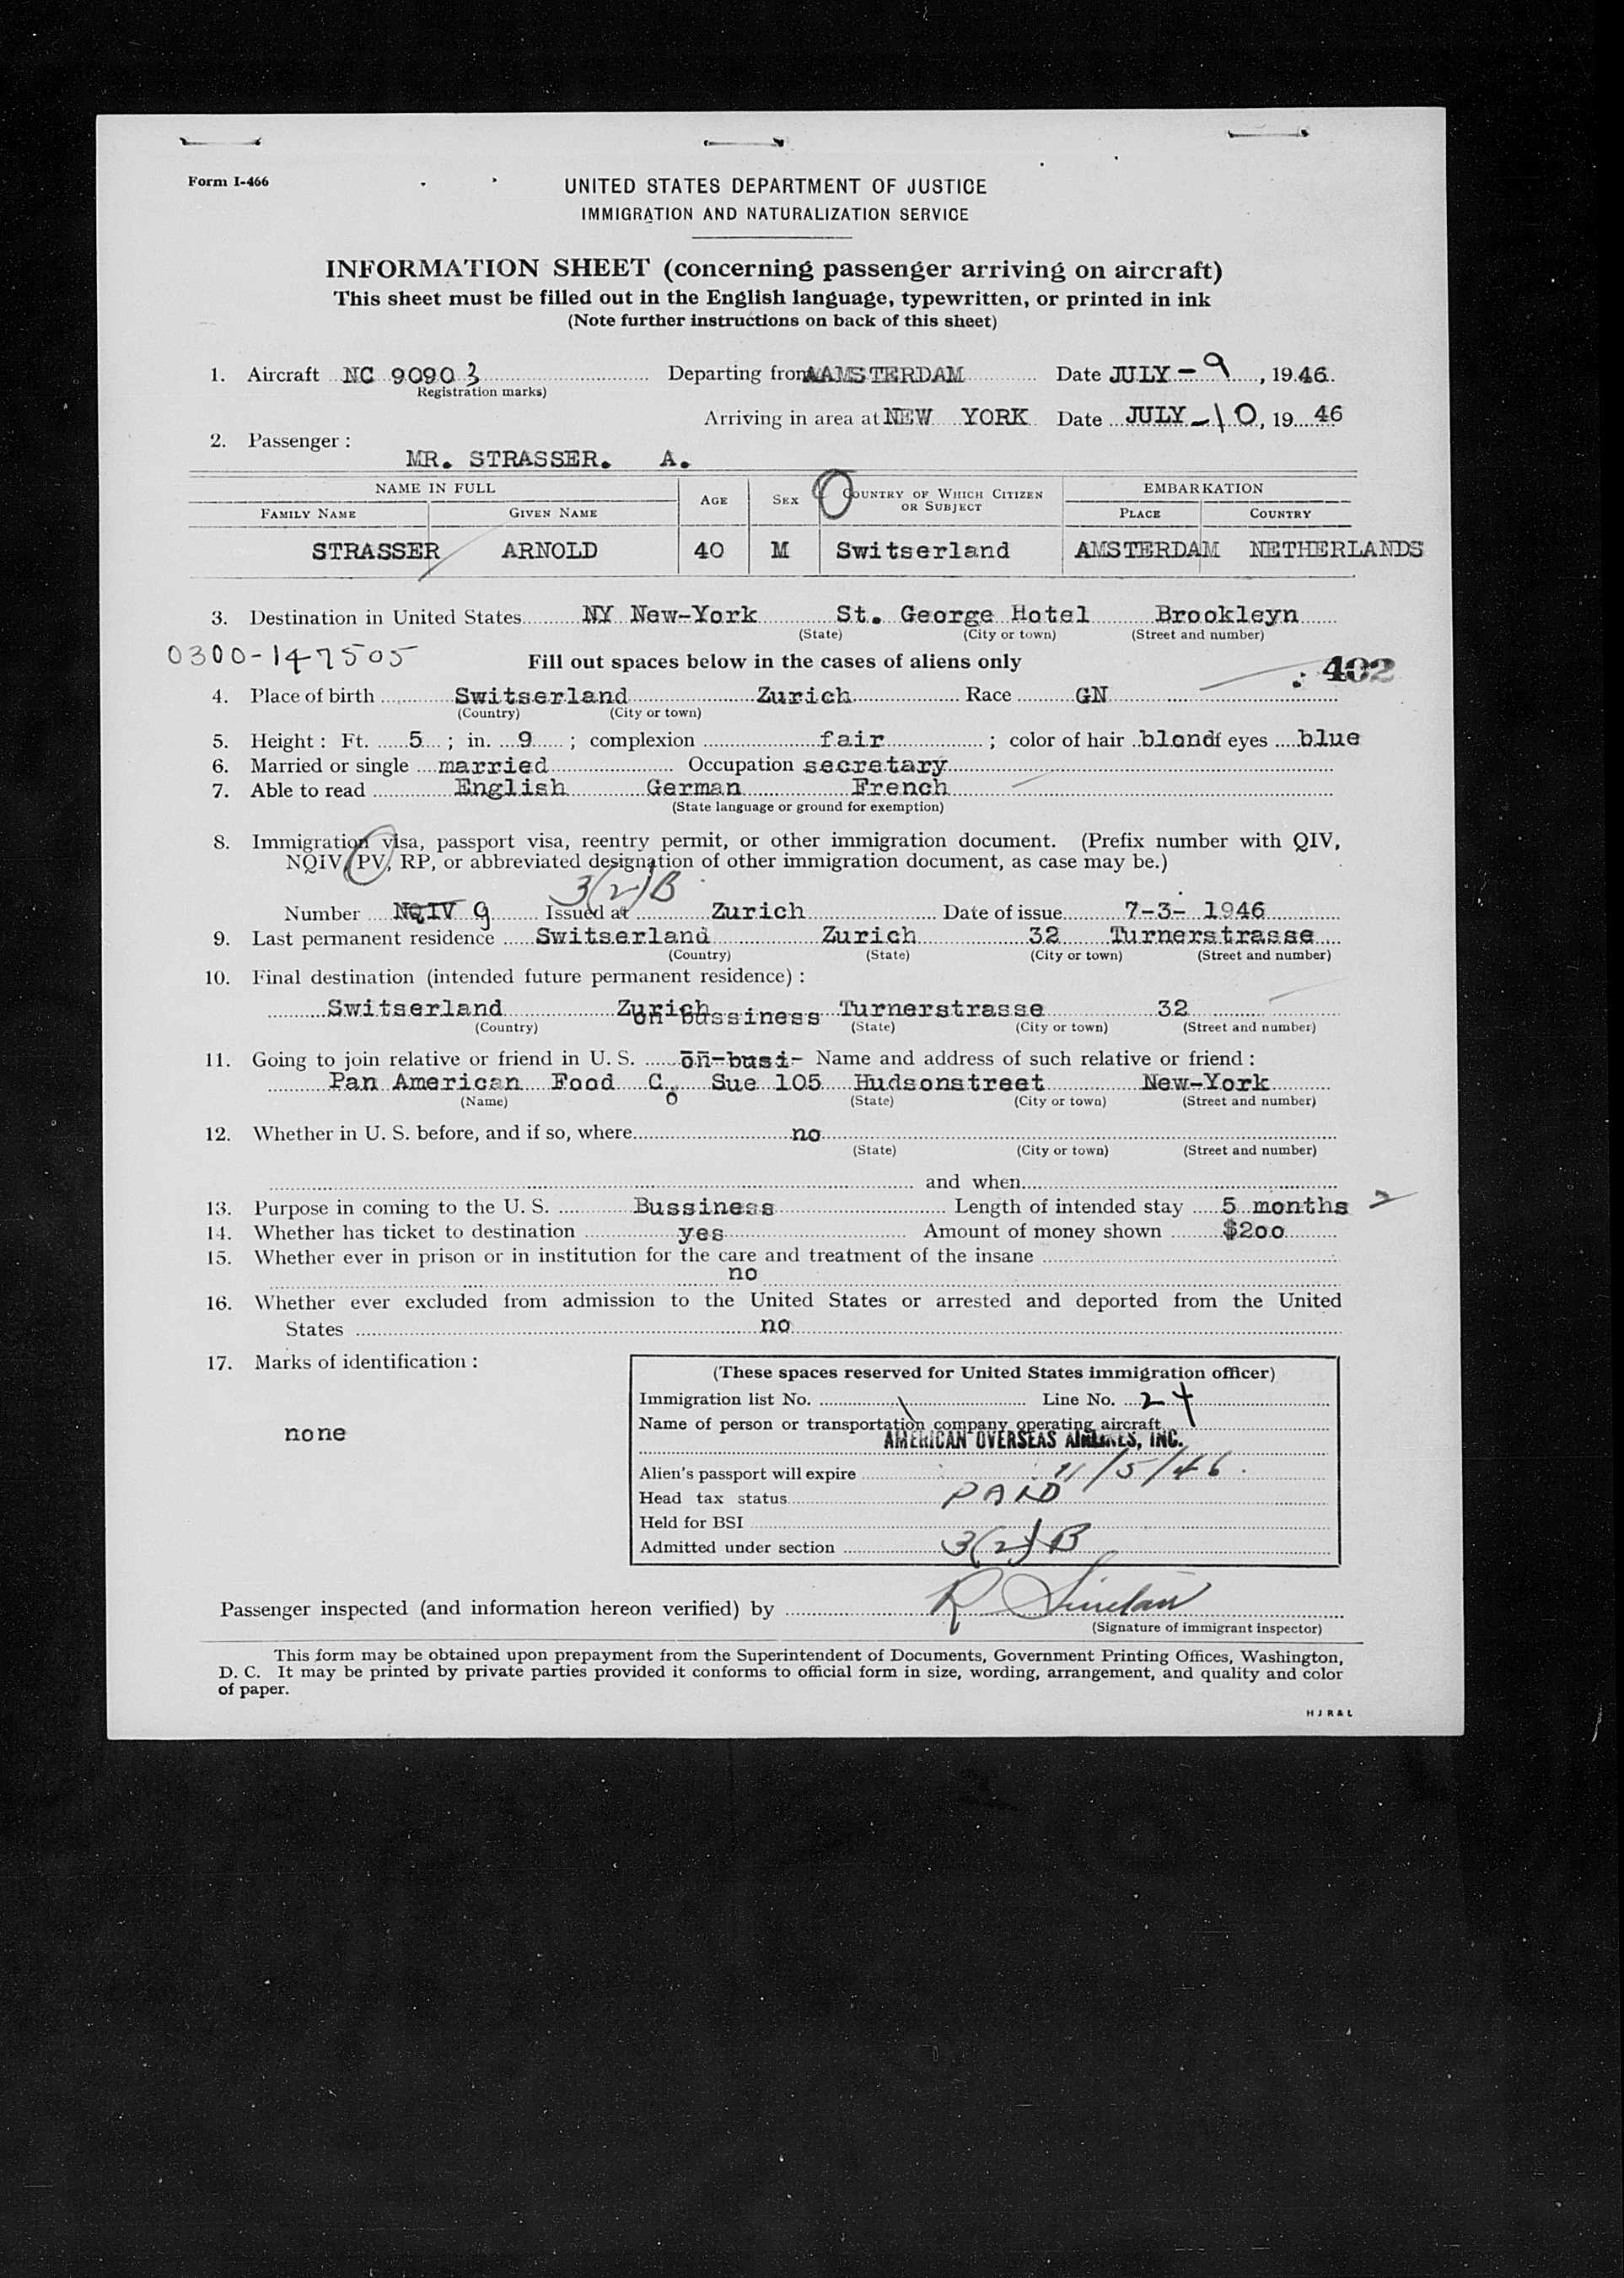 Form I-466
UNITED STATES DEPARTMENT OF JUSTICE
IMMIGRATION AND NATURALIZATION SERVICE
INFORMATION SHEET (concerning passenger arriving on aircraft)
This sheet must be filled out in the English language, typewritten, or printed in ink
(Note further instructions on back of this sheet)
1. Aircraft NC 90903 Departing from AMSTERDAM Date JULY - 9, 1946
(Registration marks)
Arriving in area at NEW YORK Date JULY - 10, 19 46
2. Passenger:
MR. STRASSER. A.
NAME IN FULL AGE SEX COUNTRY OF WHICH CITIZEN OR SUBJECT EMBARKATION
FAMILY NAME GIVEN NAME PLACE COUNTRY
STRASSER ARNOLD 40 M Switserland AMSTERDAM NETHERLANDS
3. Destination in United States NY New-York St. George Hotel Brookleyn
(State) (City or town) (Street and number)
0300-147505 Fill out spaces below in the cases of aliens only 402
4. Place of birth Switserland Zurich Race GN
(Country) (City or town)
5. Height: Ft. 5; in. 9; complexion fair; color of hair blond eyes blue
6. Married or single married Occupation secretary
7. Able to read English German French
(State language or ground for exemption)
8. Immigration visa, passport visa, reentry permit, or other immigration document. (Prefix number with QIV,
NQIV, PV, RP, or abbreviated designation of other immigration document, as case may be.)
3(2)B
Number NQIV 9 Issued at Zurich Date of issue 7-3- 1946
9. Last permanent residence Switserland Zurich 32 Turnerstrasse
(Country) (State) (City or town) (Street and number)
10. Final destination (intended future permanent residence):
Switserland Zurich Turnerstrasse 32
on bussiness
(Country) (State) (City or town) (Street and number)
11. Going to join relative or friend in U. S. on-busi- Name and address of such relative or friend:
Pan American Food Co. Sue 105 Hudsonstreet New-York
(Name) (State) (City or town) (Street and number)
12. Whether in U. S. before, and if so, where no
(State) (City or town) (Street and number)
and when
13. Purpose in coming to the U. S. Bussiness Length of intended stay 5 months
14. Whether has ticket to destination yes Amount of money shown $200
15. Whether ever in prison or in institution for the care and treatment of the insane
no
16. Whether ever excluded from admission to the United States or arrested and deported from the United
States no
17. Marks of identification:
none
(These spaces reserved for United States immigration officer)
Immigration list No. 1 Line No. 24
Name of person or transportation company operating aircraft
AMERICAN OVERSEAS AIRLINES, INC.
Alien's passport will expire 11/5/46
Head tax status PAID
Held for BSI
Admitted under section 3(2)B
Passenger inspected (and information hereon verified) by R Sinclair
(Signature of immigrant inspector)
This form may be obtained upon prepayment from the Superintendent of Documents, Government Printing Offices, Washington,
D. C. It may be printed by private parties provided it conforms to official form in size, wording, arrangement, and quality and color
of paper.
H J R & L